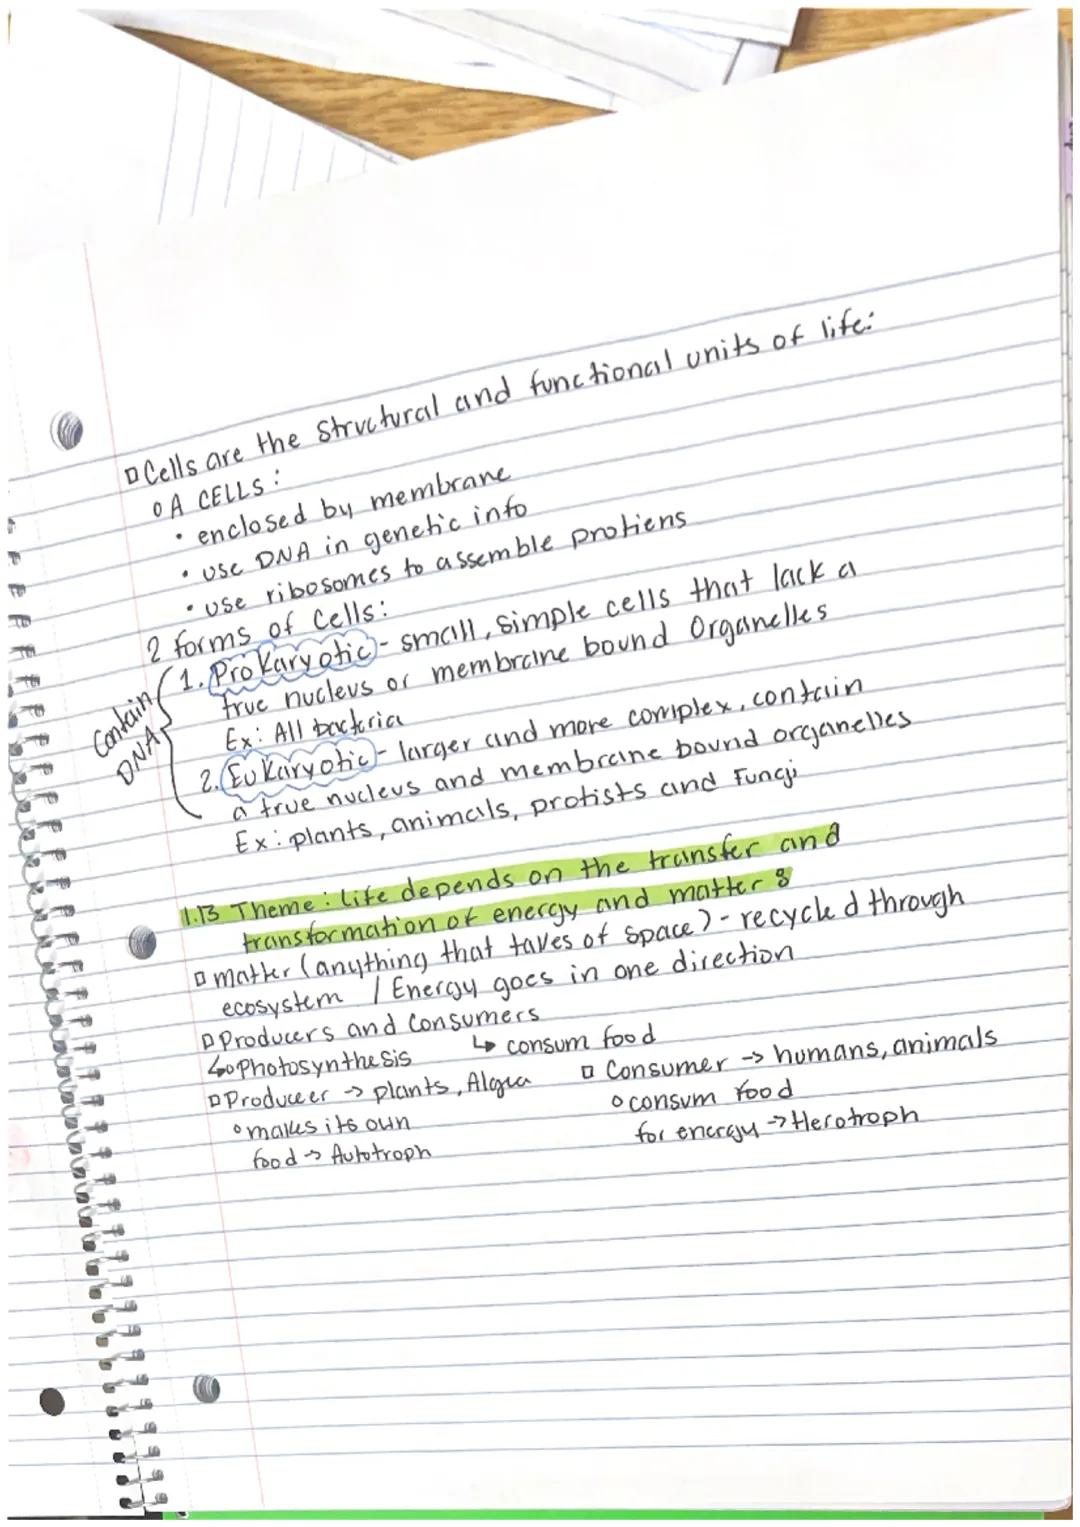 ▫ Cells are the structural and functional units of life:
◦ A CELLS:
• enclosed by membrane
• use DNA in genetic info
• use ribosomes to assemble protiens
2 forms of Cells:
Contain DNA
1. Prokaryotic - small, simple cells that lack a
true nucleus or membrane bound Organelles
Ex: All bacteria
2. Eukaryotic - larger and more complex, contain
a true nucleus and membrane bound organelles
Ex: plants, animals, protists and Fungi
1.13 Theme: life depends on the transfer and
transformation of energy and matter:
▫ matter (anything that takes of space) - recycled through
ecosystem / Energy goes in one direction
▫ Producers and Consumers
↳ Photosynthesis ↳ consum food
▫ Produceer → plants, Algea ▫ Consumer → humans, animals
◦ makes its own ◦ consum food
food → Autotroph for energy → Herotroph